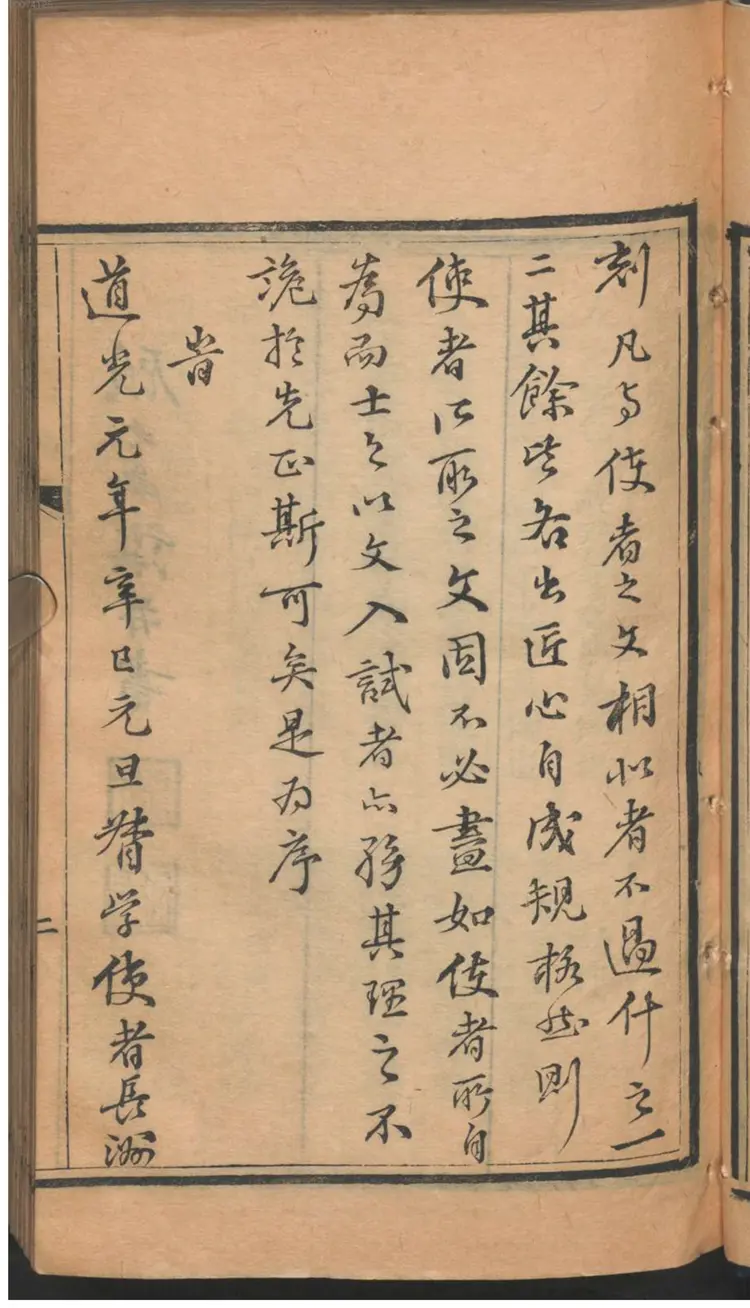 刻凡与使者之文相似者不過什之一
二其餘皆各出匠心自成規格然則
使者所取之文固不必盡如使者所自
為而士之以文入試者亦務其理之不
詭於先正斯可矣是为序
旹
道光元年辛巳元旦督学使者長洲
二